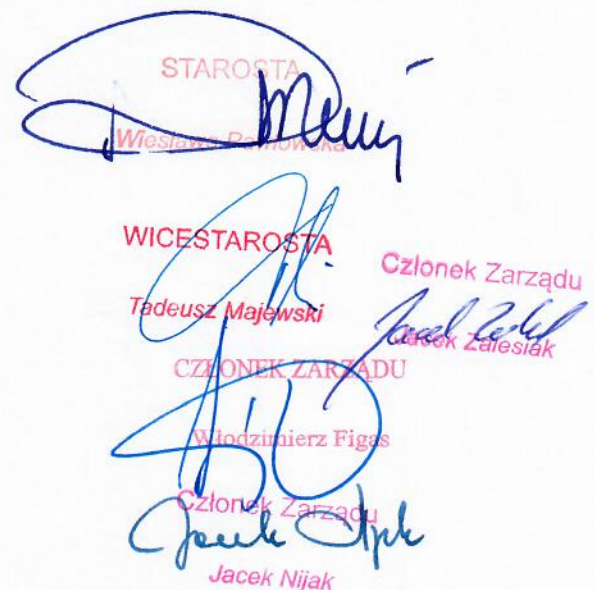 STAROSTA
Wiesława
WICESTAROSTA
Tadeusz Majewski
Członek Zarządu
Jacek Zalesiak
CZŁONEK ZARZĄDU
Włodzimierz Figas
Członek Zarządu
Jacek
Jacek Nijak